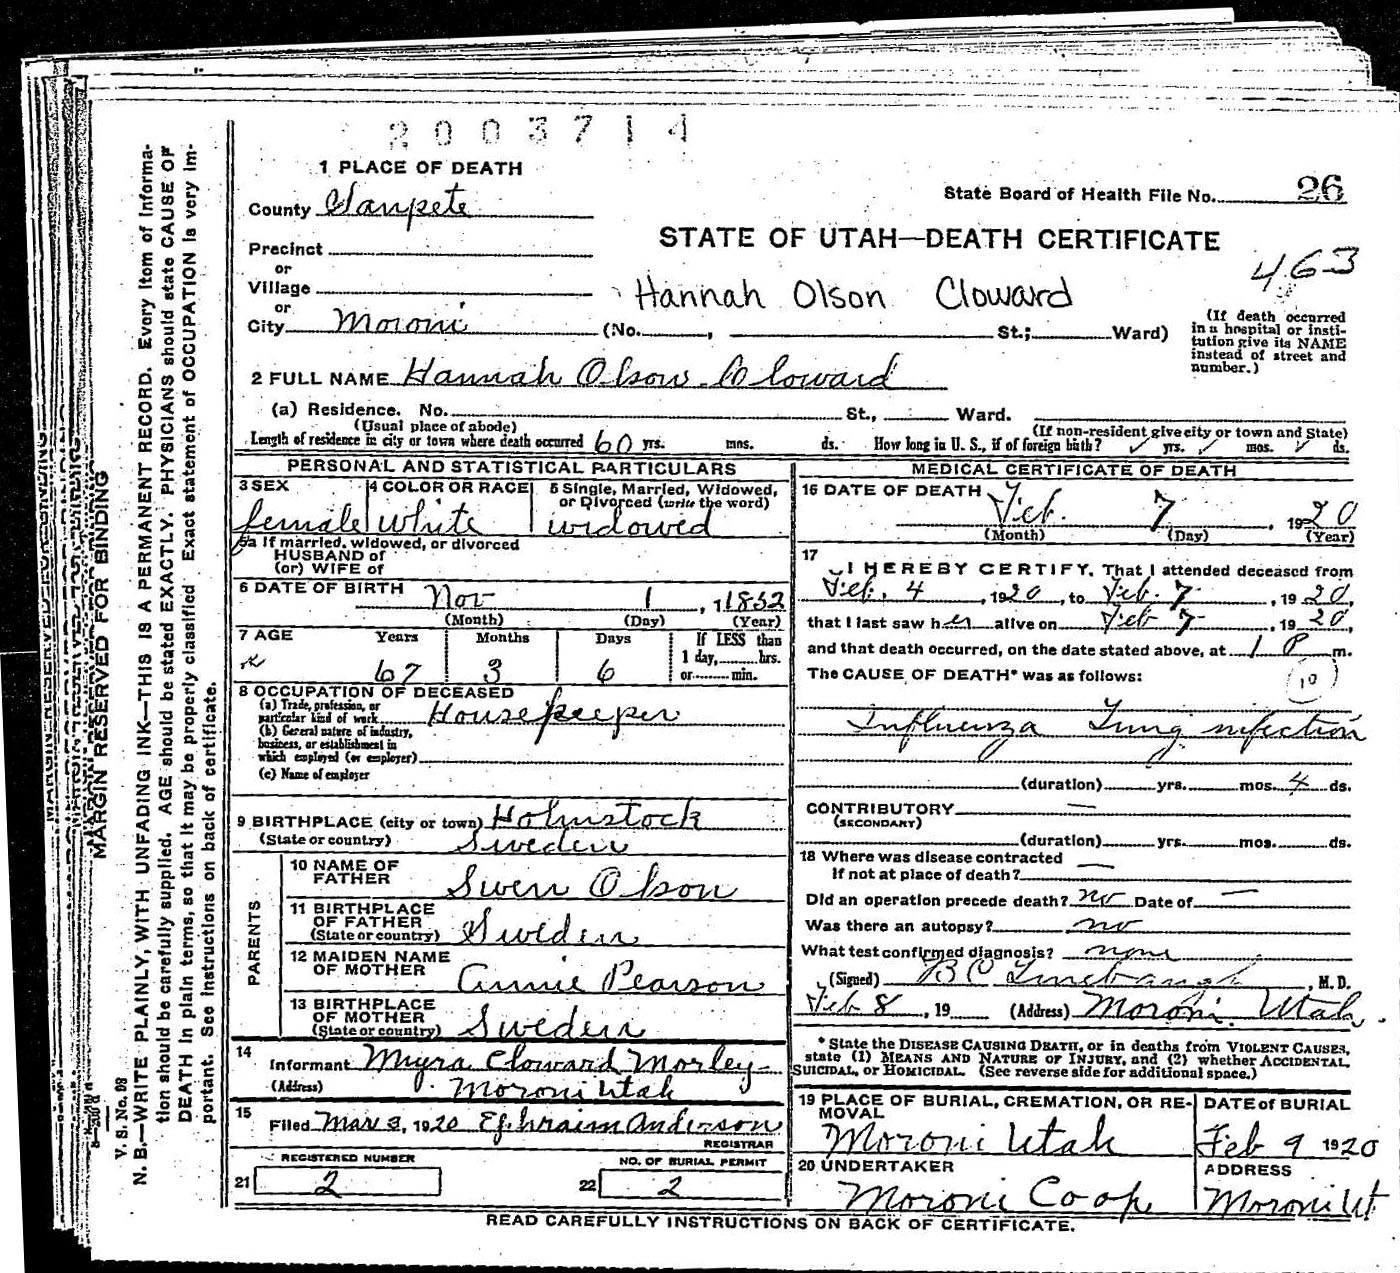 2003714
1 PLACE OF DEATH
State Board of Health File No. 26
County Sanpete
STATE OF UTAH—DEATH CERTIFICATE
463
Precinct
or
Village
Hannah Olson Cloward
or
City Moroni (No. , St.; Ward)
(If death occurred in a hospital or insti-
tution give its NAME
instead of street and
number.)
2 FULL NAME Hannah Olson Cloward
(a) Residence. No. St., Ward.
(Usual place of abode) (If non-resident give city or town and State)
Length of residence in city or town where death occurred 60 yrs. mos. ds. How long in U. S., if of foreign birth? yrs. mos. ds.
PERSONAL AND STATISTICAL PARTICULARS
3 SEX 4 COLOR OR RACE 5 Single, Married, Widowed,
or Divorced (write the word)
female white widowed
5a If married, widowed, or divorced
HUSBAND of
(or) WIFE of
6 DATE OF BIRTH Nov 1, 1852
(Month) (Day) (Year)
7 AGE Years Months Days If LESS than
1 day, hrs.
67 3 6 or min.
8 OCCUPATION OF DECEASED
(a) Trade, profession, or
particular kind of work Housekeeper
(b) General nature of industry,
business, or establishment in
which employed (or employer)
(c) Name of employer
9 BIRTHPLACE (city or town) Holmstock
(State or country) Sweden
PARENTS
10 NAME OF
FATHER Swen Olson
11 BIRTHPLACE
OF FATHER
(State or country) Sweden
12 MAIDEN NAME
OF MOTHER Annie Pearson
13 BIRTHPLACE
OF MOTHER
(State or country) Sweden
14
Informant Myra Cloward Morley
(Address) Moroni Utah
15
Filed Mar 3, 1920 Ephraim Anderson
REGISTRAR
REGISTERED NUMBER NO. OF BURIAL PERMIT
21 2 22 2
MEDICAL CERTIFICATE OF DEATH
16 DATE OF DEATH Feb. 7, 1920
(Month) (Day) (Year)
17
I HEREBY CERTIFY, That I attended deceased from
Feb. 4, 1920, to Feb. 7, 1920,
that I last saw her alive on Feb 7, 1920,
and that death occurred, on the date stated above, at 1 P m.
The CAUSE OF DEATH* was as follows:
10
Influenza Lung infection
(duration) yrs. mos. 4 ds.
CONTRIBUTORY —
(SECONDARY)
(duration) yrs. mos. ds.
18 Where was disease contracted
If not at place of death? —
Did an operation precede death? no Date of —
Was there an autopsy? no
What test confirmed diagnosis? none
(Signed) B C , M. D.
Feb 8, 19 (Address) Moroni, Utah.
* State the DISEASE CAUSING DEATH, or in deaths from VIOLENT CAUSES,
state (1) MEANS AND NATURE OF INJURY, and (2) whether ACCIDENTAL,
SUICIDAL, or HOMICIDAL. (See reverse side for additional space.)
19 PLACE OF BURIAL, CREMATION, OR RE-
MOVAL
Moroni Utah
DATE of BURIAL
Feb 9 1920
20 UNDERTAKER
Moroni Co op.
ADDRESS
Moroni Ut
READ CAREFULLY INSTRUCTIONS ON BACK OF CERTIFICATE.
MARGIN RESERVED FOR BINDING
V. S. No. 98
N. B.—WRITE PLAINLY, WITH UNFADING INK—THIS IS A PERMANENT RECORD. Every item of Informa-
tion should be carefully supplied. AGE should be stated EXACTLY. PHYSICIANS should state CAUSE OF
DEATH in plain terms, so that it may be properly classified. Exact statement of OCCUPATION is very im-
portant. See instructions on back of certificate.